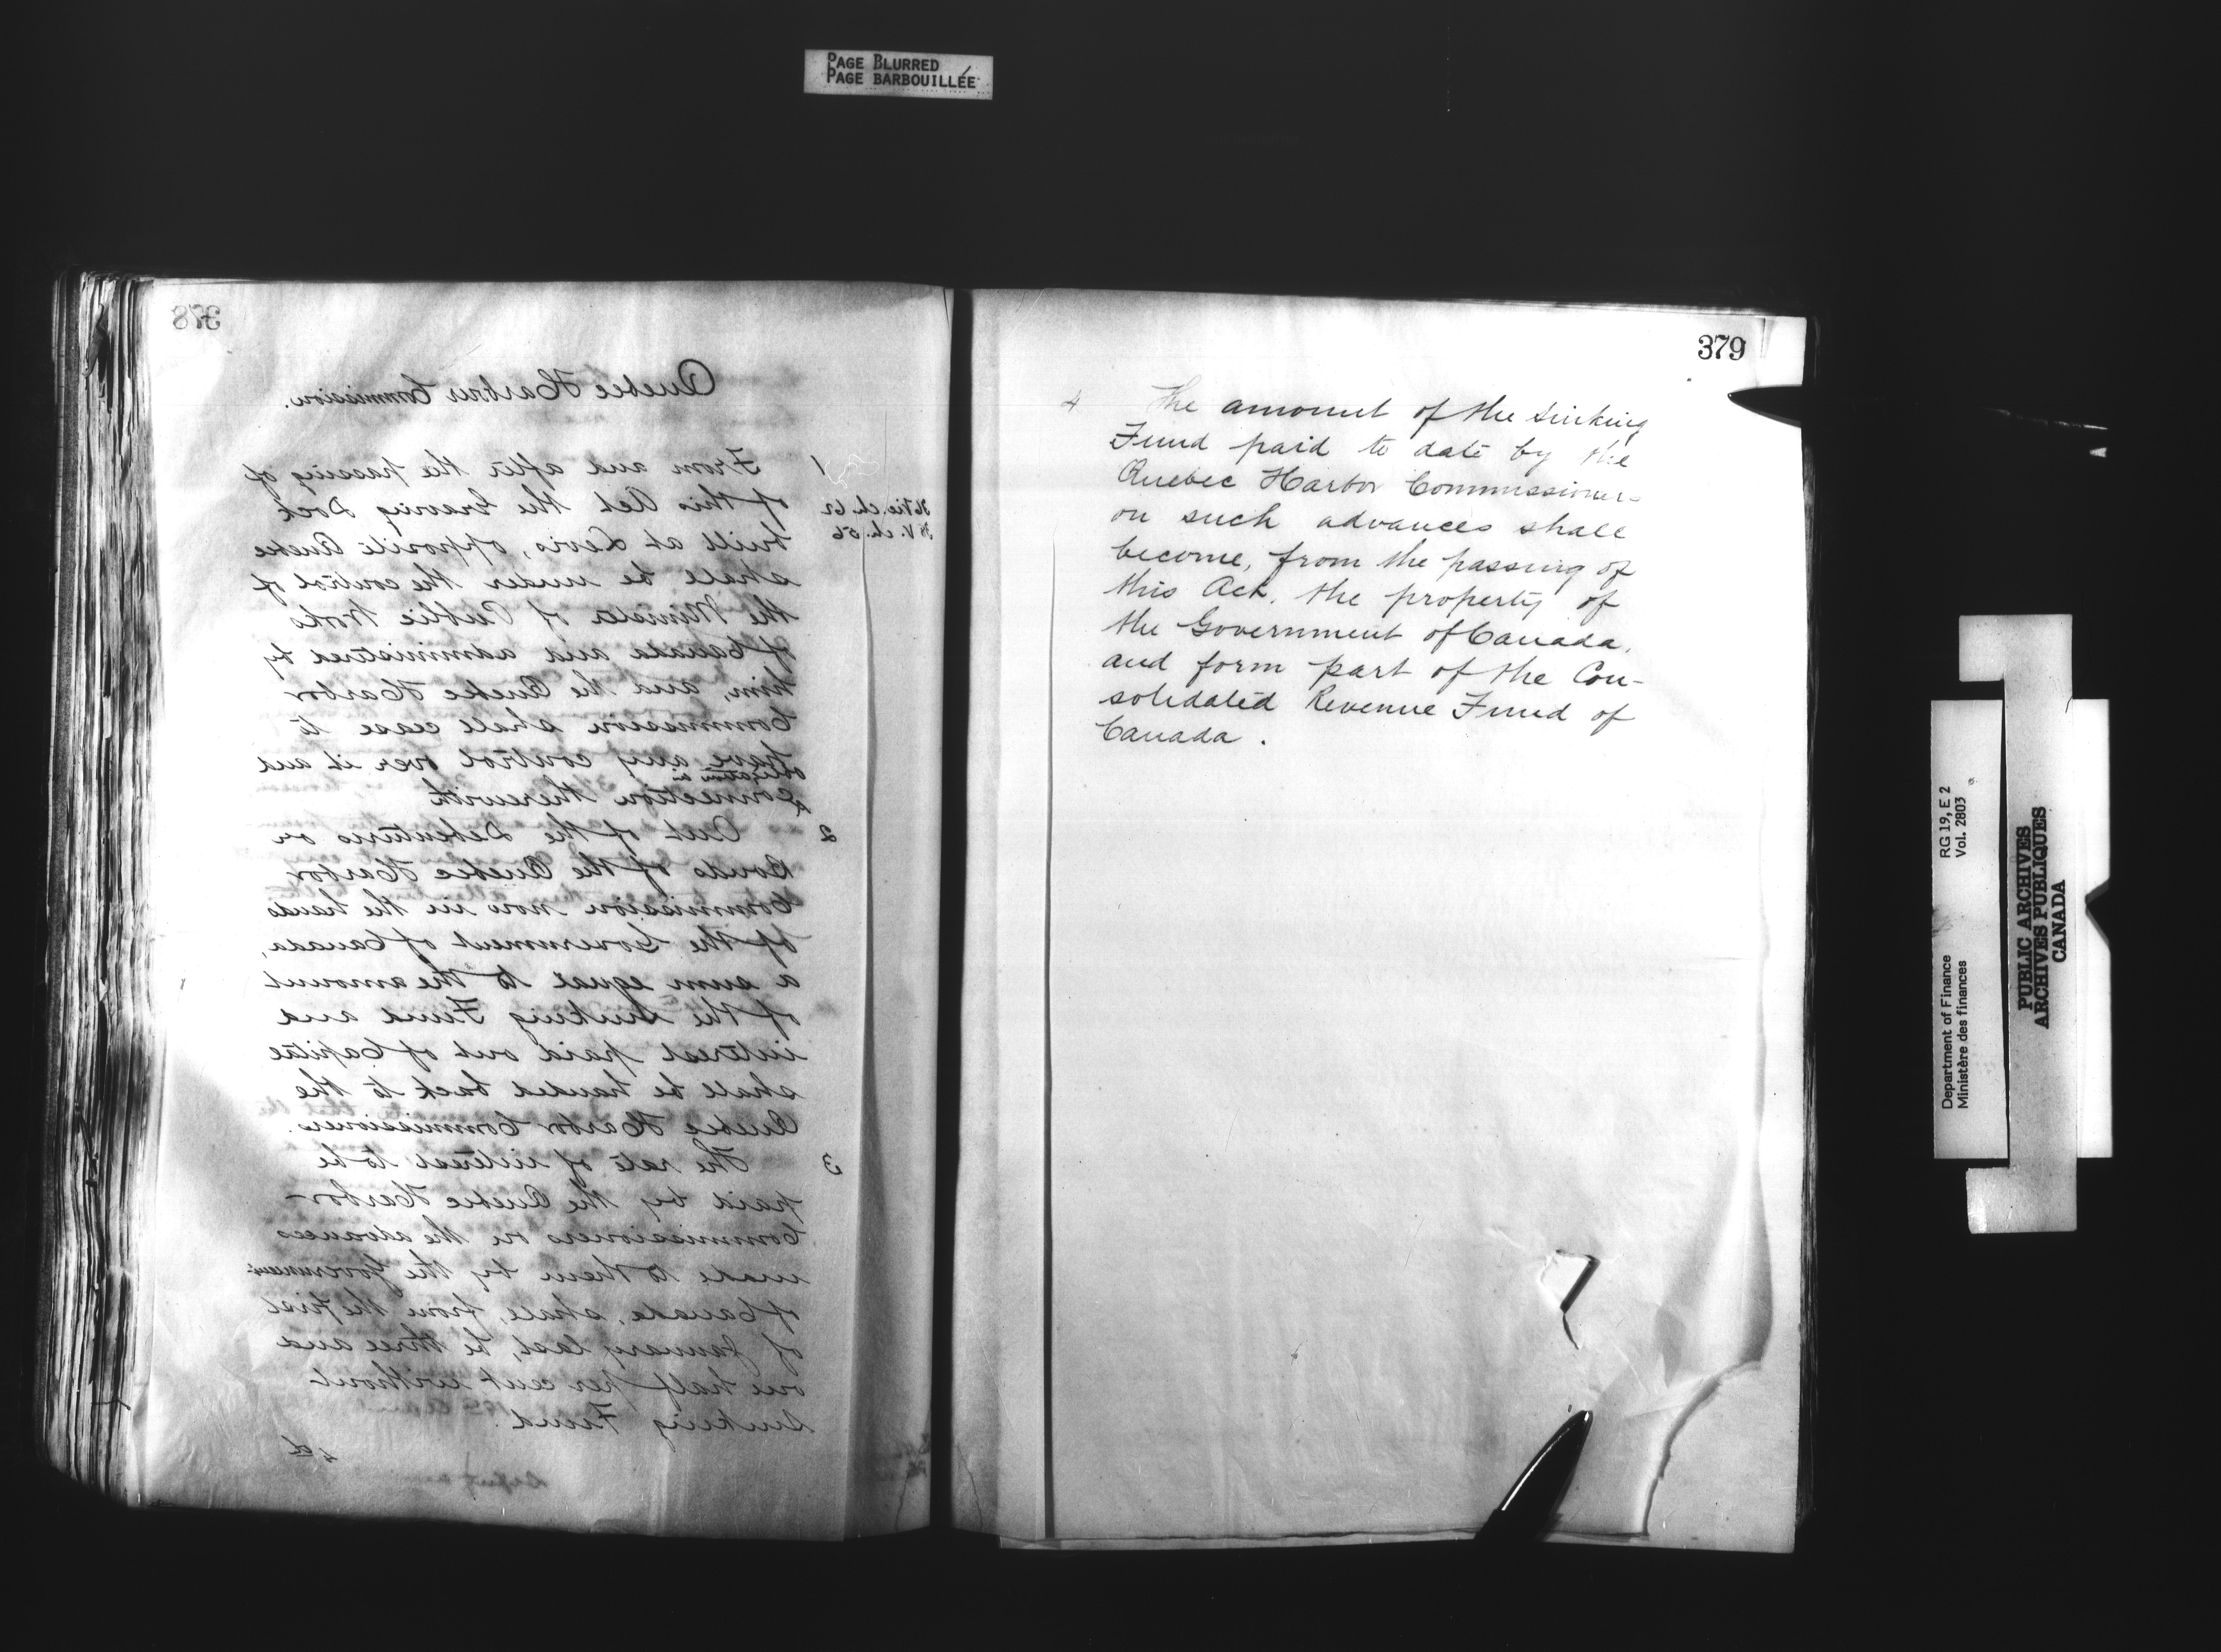 PAGE BLURRED
PAGE BARBOUILLÉE
378
Quebec Harbor Commission.
1 From and after the passing of
36 Vic. ch. 62 of this Act the Graving Dock
38 V. ch. 56 built at Levis, opposite Quebec
shall be under the control of
the Minister of Public Works
of Canada and administered by
him, and the Quebec Harbor
Commission shall cease to
have any control over it and
obligation in
connection therewith
2 Out of the Debentures or
Bonds of the Quebec Harbor
Commission now in the hands
of the Government of Canada,
a sum equal to the amount
of the Sinking Fund and
interest paid out of Capital
shall be handed back to the
Quebec Harbor Commissioners.
3 The rate of interest to be
paid by the Quebec Harbor
Commissioners on the advances
made to them by the Government
of Canada, shall, from the first
of January last, be three and
one half per cent without
Sinking Fund.
379
4 The amount of the Sinking
Fund paid to date by the
Quebec Harbor Commissioners
on such advances shall
become, from the passing of
this Act, the property of
the Government of Canada,
and form part of the Con-
solidated Revenue Fund of
Canada.
Department of Finance RG 19, E 2
Ministère des finances Vol. 2803
PUBLIC ARCHIVES
ARCHIVES PUBLIQUES
CANADA